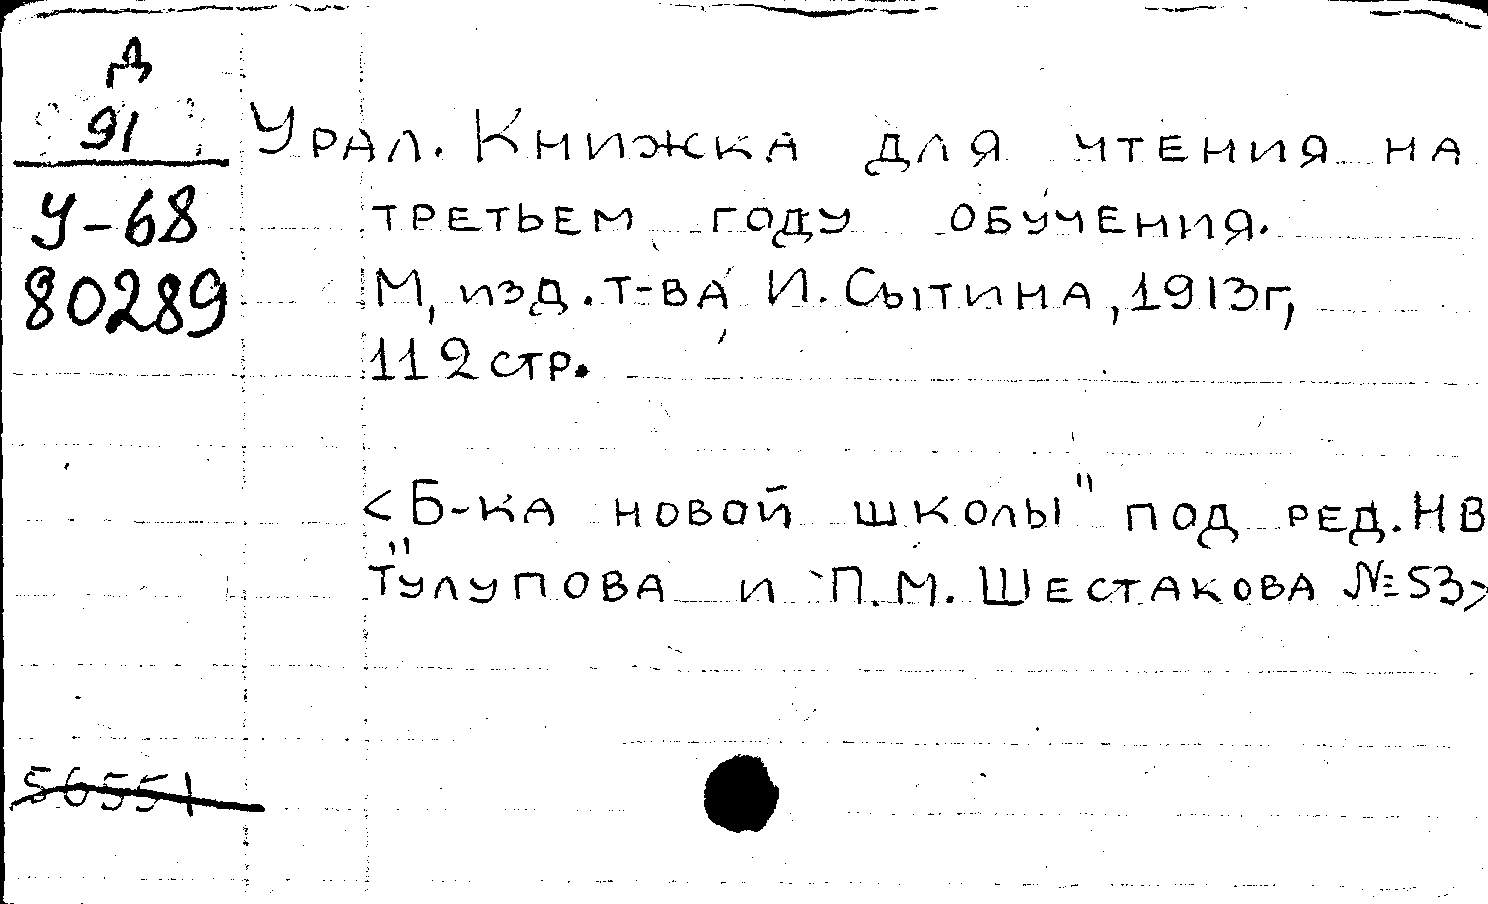 Д
91
У-68
80289
Урал. Книжка для чтения на
третьем году обучения.
М, изд. т-ва И. Сытина, 1913г,
112 стр.
<Б-ка новой школы" под ред. Н В
"Тулупова и П. М. Шестакова №53>
56551